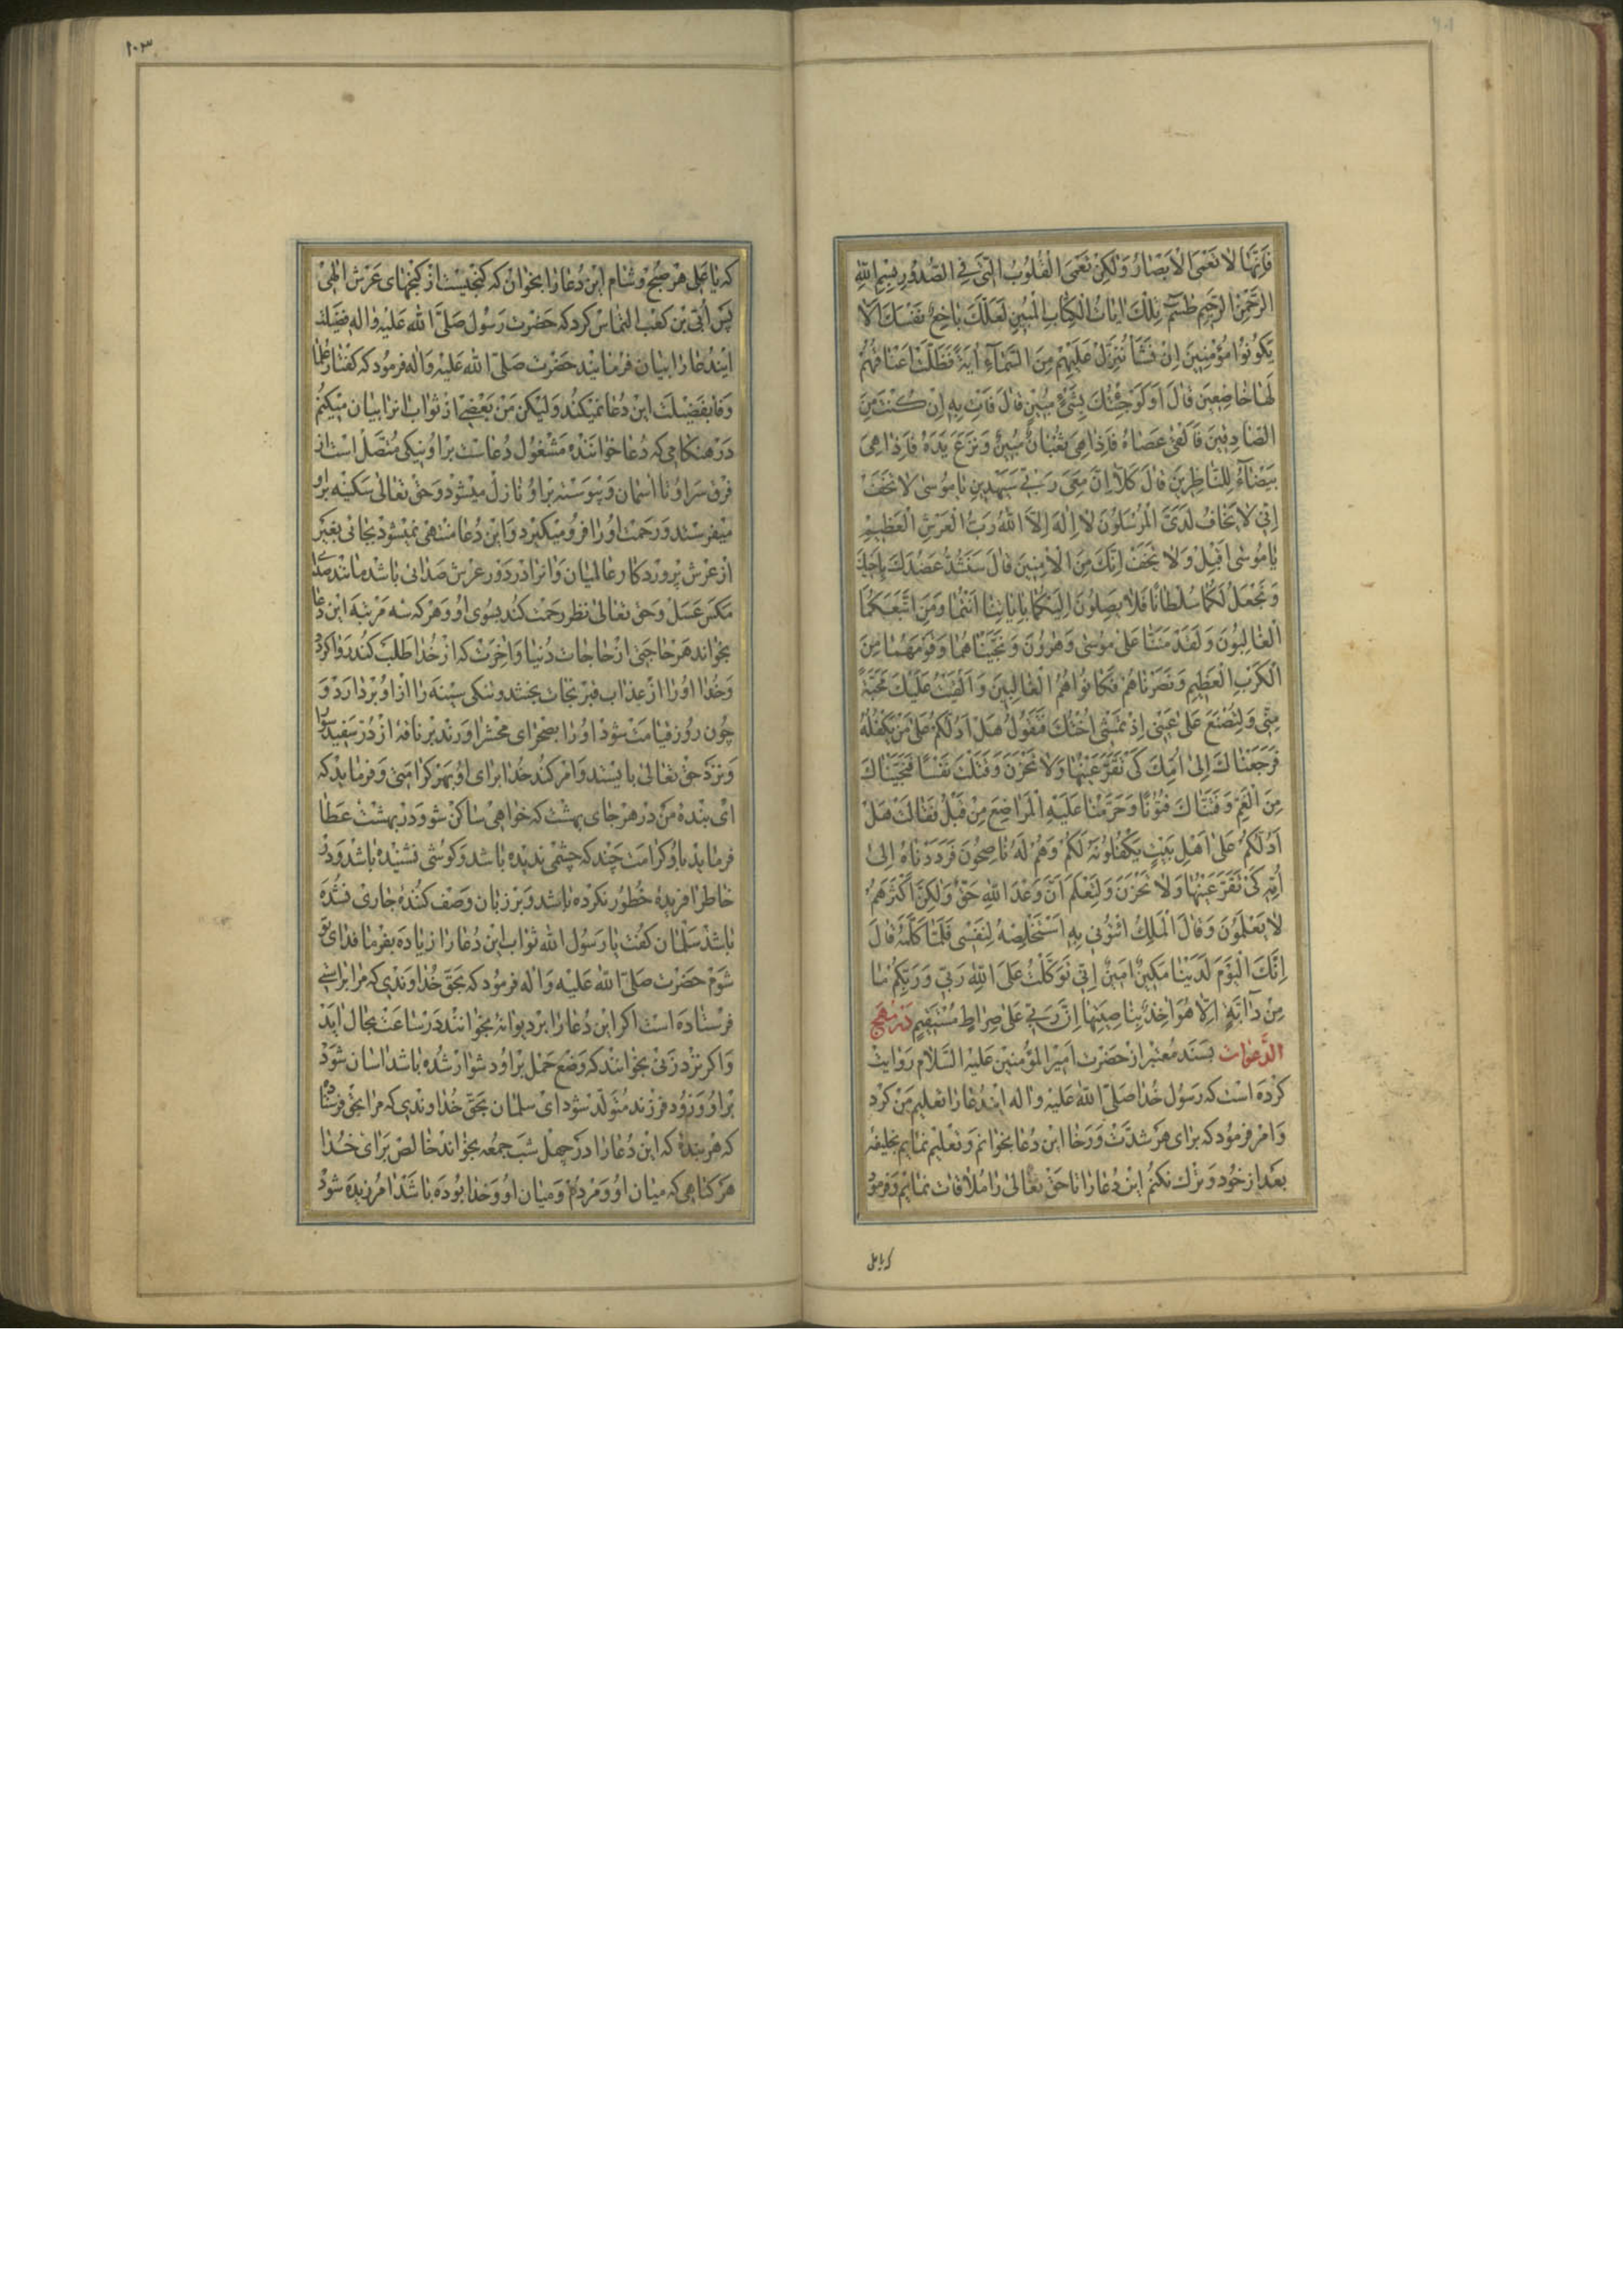 فَاِنَّهَا لَا تَعْمَی الْاَبْصَارُ وَلٰکِنْ تَعْمَی الْقُلُوبُ الَّتی فِی الصُّدُورِ بِسْمِ اللهِ
الرَّحْمٰنِ الرَّحیمِ طٰسٓمٓ تِلْكَ ایَاتُ الْکِتَابِ الْمُبینِ لَعَلَّكَ بَاخِعٌ نَفْسَكَ اَلَّا
یَکُونُوا مُؤْمِنینَ اِنْ نَشَأْ نُنَزِّلْ عَلَیْهِمْ مِنَ السَّمَآءِ ایَةً فَظَلَّتْ اَعْنَاقُهُمْ
لَهَا خَاضِعینَ قَالَ اَوَلَوْ جِئْتُكَ بِشَیْءٍ مُبینٍ قَالَ فَاْتِ بِهِ اِنْ کُنْتَ مِنَ
الصَّادِقینَ فَاَلْقٰی عَصَاهُ فَاِذَا هِیَ ثُعْبَانٌ مُبینٌ وَنَزَعَ یَدَهُ فَاِذَا هِیَ
بَیْضَآءُ لِلنَّاظِرینَ قَالَ کَلَّا اِنَّ مَعِیَ رَبّی سَیَهْدینِ یَا مُوسٰی لَا تَخَفْ
اِنّی لَا یَخَافُ لَدَیَّ الْمُرْسَلُونَ لَا اِلٰهَ اِلَّا اللهُ رَبُّ الْعَرْشِ الْعَظیمِ
یَا مُوسٰی اَقْبِلْ وَلَا تَخَفْ اِنَّكَ مِنَ الْاٰمِنینَ قَالَ سَنَشُدُّ عَضُدَكَ بِاَخیكَ
وَنَجْعَلُ لَکُمَا سُلْطَانًا فَلَا یَصِلُونَ اِلَیْکُمَا بِایَاتِنَا اَنْتُمَا وَمَنِ اتَّبَعَکُمَا
الْغَالِبُونَ وَلَقَدْ مَنَنَّا عَلٰی مُوسٰی وَهٰرُونَ وَنَجَّیْنَاهُمَا وَقَوْمَهُمَا مِنَ
الْکَرْبِ الْعَظیمِ وَنَصَرْنَاهُمْ فَکَانُوا هُمُ الْغَالِبینَ وَاَلْقَیْتُ عَلَیْكَ مَحَبَّةً
مِنّی وَلِتُصْنَعَ عَلٰی عَیْنی اِذْ تَمْشی اُخْتُكَ فَتَقُولُ هَلْ اَدُلُّکُمْ عَلٰی مَنْ یَکْفُلُهُ
فَرَجَعْنَاكَ اِلٰی اُمِّكَ کَیْ تَقَرَّ عَیْنُهَا وَلَا تَحْزَنَ وَقَتَلْتَ نَفْسًا فَنَجَّیْنَاكَ
مِنَ الْغَمِّ وَفَتَنَّاكَ فُتُونًا وَحَرَّمْنَا عَلَیْهِ الْمَرَاضِعَ مِنْ قَبْلُ فَقَالَتْ هَلْ
اَدُلُّکُمْ عَلٰی اَهْلِ بَیْتٍ یَکْفُلُونَهُ لَکُمْ وَهُمْ لَهُ نَاصِحُونَ فَرَدَدْنَاهُ اِلٰی
اُمِّهِ کَیْ تَقَرَّ عَیْنُهَا وَلَا تَحْزَنَ وَلِتَعْلَمَ اَنَّ وَعْدَ اللهِ حَقٌّ وَلٰکِنَّ اَکْثَرَهُمْ
لَا یَعْلَمُونَ وَقَالَ الْمَلِكُ ائْتُونی بِهِ اَسْتَخْلِصْهُ لِنَفْسی فَلَمَّا کَلَّمَهُ قَالَ
اِنَّكَ الْیَوْمَ لَدَیْنَا مَکینٌ اَمینٌ اِنّی تَوَکَّلْتُ عَلَی اللهِ رَبّی وَرَبِّکُمْ مَا
مِنْ دَآبَّةٍ اِلَّا هُوَ اٰخِذٌ بِنَاصِیَتِهَا اِنَّ رَبّی عَلٰی صِرَاطٍ مُسْتَقیمٍ دَرْ مُهَجِ
الدَّعَوَات بسند معتبر از حضرت امیرالمؤمنین علیه السلام روایت
کرده است که رسول خدا صلی الله علیه واله ایندعا را تعلیم من کرد
وامر فرمود که برای هر شدّت ورخا این دعا بخوانم وتعلیم نمایم بخلیفه
بعد از خود وترك نکنم این دعا را تا حق تعالی را ملاقات نمایم وفرمود
که یا علی
۱۰۳
که یا علی هر صبح وشام این دعا را بخوان که گنجیست از گنجهای عرش الهی
پس اُبیّ بن کعب التماس کرد که حضرت رسول صلی الله علیه واله فضیلت
ایندعا را بیان فرمایند حضرت صلی الله علیه واله فرمود که گفتار
وفا بفضیلت این دعا نمیکند ولیکن من بعضی از ثواب انرا بیان میکنم
در هنگامی که دعا خواننده مشغول دعاست براو نیکی متصل است از
فرق سر او تا اسمان وپیوسته براو نازل میشود وحق تعالی سکینه براو
میفرستد ورحمت اورا فرو میگیرد واین دعا منتهی نمیشود بجائی بغیر
از عرش پروردگار عالمیان وانرا در دور عرش صدائی باشد مانند صدا
مگس عسل وحق تعالی نظر رحمت کند بسوی او وهر که سه مرتبه این دعا
بخواند هر حاجتی از حاجات دنیا واخرت که از خدا طلب کند روا گردد
وخدا اورا از عذاب قبر نجات بخشد وتنگی سینه را از او بردارد و
چون روز قیامت شود اورا بصحرای محشر اورند بر ناقه از در سفید سوار
ونزد حق تعالی بایستد وامر کند خدا برای او بهر کرامتی وفرماید که
ای بنده من در هر جای بهشت که خواهی ساکن شو ودر بهشت عطا
فرماید باو کرامت چند که چشمی ندیده باشد وگوشی نشنیده باشد ودر
خاطر افریدهٔ خطور نکرده باشد وبر زبان وصف کنندهٔ جاری نشده
باشد سلمان گفت یا رسول الله ثواب این دعا را زیاده بفرما فدای تو
شوم حضرت صلی الله علیه واله فرمود که بحق خداوندی که مرا براستی
فرستاده است اگر این دعا را بر دیوانه بخوانند در ساعت بحال اید
واگر نزد زنی بخوانند که وضع حمل براو دشوار شده باشد اسان شود
براو وزود فرزند متولد شود ای سلمان بحق خداوندی که مرا بحق فرستاد
که هر بندهٔ که این دعا را در چهل شب جمعه بخواند خالص برای خدا
هر گناهی که میان او ومردم ومیان او وخدا بوده باشد امرزیده شود